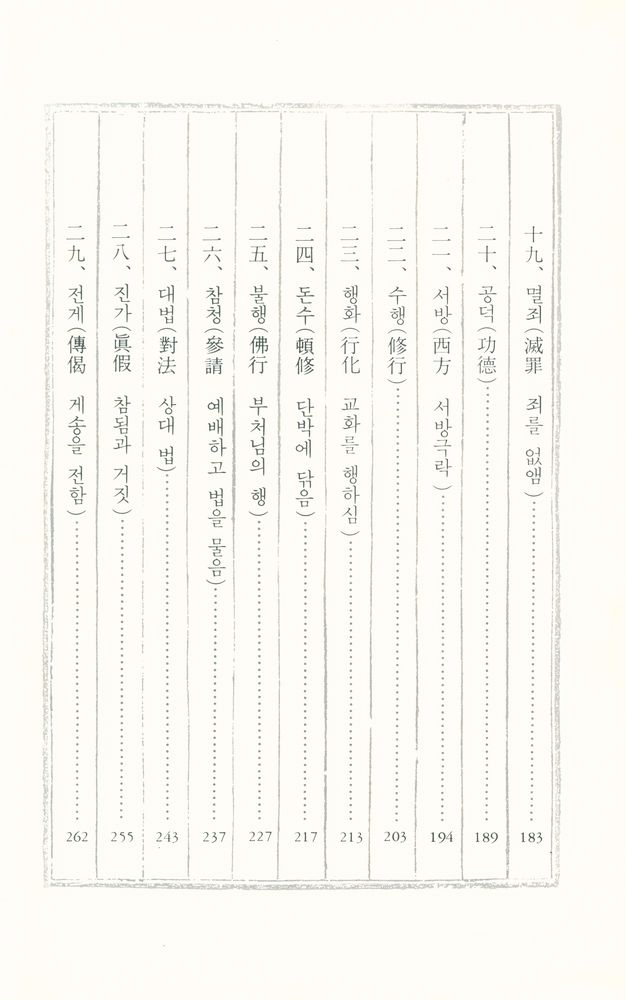 十九、멸죄(滅罪 죄를 없앰)……183
二十、공덕(功德)……189
二一、서방(西方 서방극락)……194
二二、수행(修行)……203
二三、행화(行化 교화를 행하심)……213
二四、돈수(頓修 단박에 닦음)……217
二五、불행(佛行 부처님의 행)……227
二六、참청(參請 예배하고 법을 물음)……237
二七、대법(對法 상대 법)……243
二八、진가(眞假 참됨과 거짓)……255
二九、전게(傳偈 게송을 전함)……262